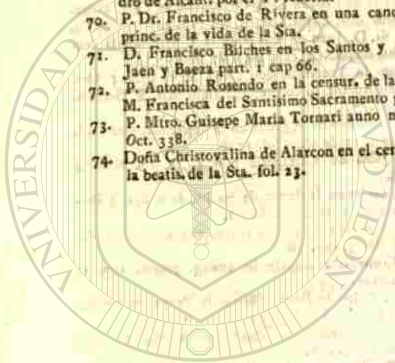 70. P. Dr. Francisco de Rivera en una
princ. de la vida de la Sta.
71. D. Francisco Bilches en los Santos y
Jaen y Baeza part. 1 cap 66.
72. P. Antonio Rosendo en la censur. de la
M. Francisca del Santisimo Sacramento
73. P. Mtro. Guisepe Maria Tornari anno
Oct. 338.
74. Doña Christovalina de Alarcon en el
la beatis. de la Sta. fol. 23.